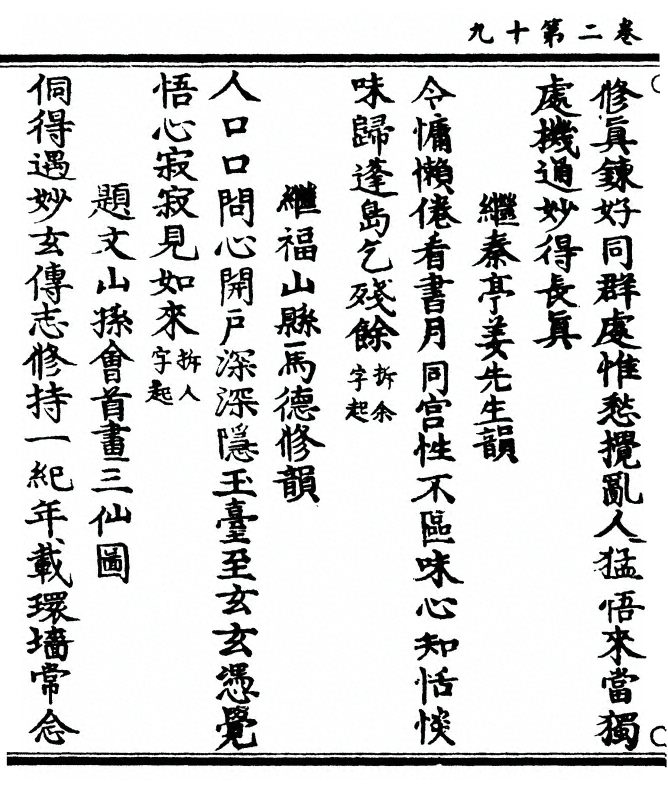 卷二第十九
修真鍊好同群處惟愁攪亂人猛悟來當獨
處機通妙得長真
繼秦亭姜先生韻
令慵懶倦看書月同宫性不區味心知恬惔
味歸蓬島乞殘餘拆余字起
繼福山縣馬德修韻
人口口問心開戶深深隱玉臺至玄玄憑覺
悟心寂寂見如來拆人字起
題文山孫會首畫三仙圖
侗得遇妙玄傳志修持一紀年載環墻常念